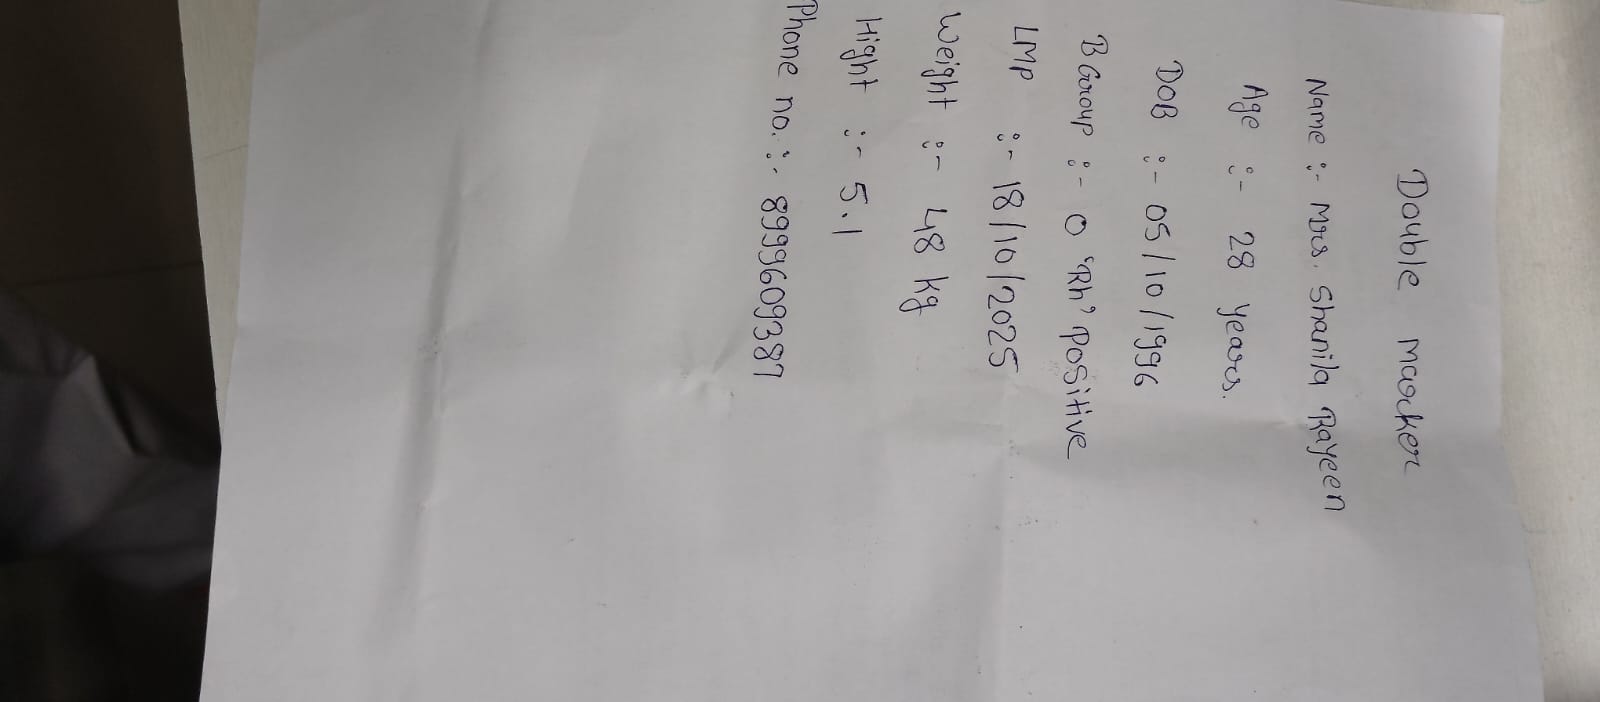 Double Marker
Name :- Mrs. Shanila Rayeen
Age :- 28 years.
DOB :- 05/10/1996
B Group :- O 'Rh' Positive
LMP :- 18/10/2025
Weight :- 48 kg
Hight :- 5.1
Phone no. :- 8999609387